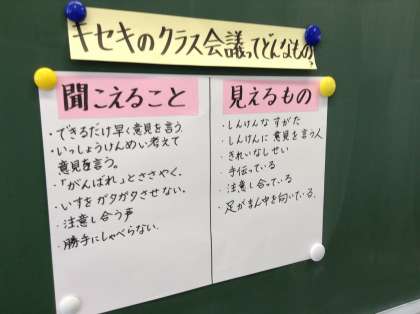 キセキのクラス会議ってどんなもの。
聞こえること
・できるだけ早く意見を言う
・いっしょうけんめい考えて
意見を言う。
・「がんばれ」とささやく。
・いすをガタガタさせない。
・注意し合う声
・勝手にしゃべらない。
見えるもの
・しんけんなすがた
・しんけんに意見を言う人
・きれいなしせい
・手伝っている
・注意し合っている
・足がまん中を向いている。